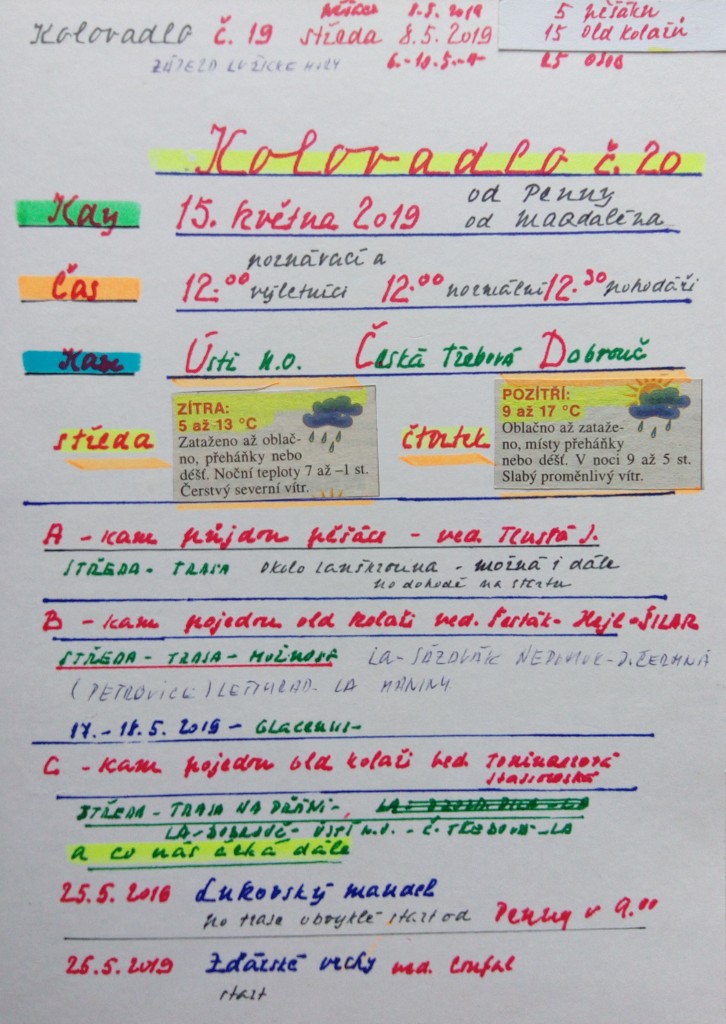 pěšáce 8.5. 2019
5 pěšáků
Kolovadlo č. 19 středa 8.5.2019
15 old kolařů
ZÁJEZD LUŽICKÉ HORY 6.-10.5.
25 osob
Kolovadlo č. 20
Kdy 15. května 2019 od Penny
od Magdaléna
Čas 12.00 poznávací a
výletníci 12.00 normální 12.30 pohodáři
Kam Ústí n.O. Česká Třebová Dobrouč
středa
ZÍTRA:
5 až 13 °C
Zataženo až oblač-
no, přeháňky nebo
déšť. Noční teploty 7 až –1 st.
Čerstvý severní vítr.
čtvrtek
POZÍTŘÍ:
9 až 17 °C
Oblačno až zataže-
no, místy přeháňky
nebo déšť. V noci 9 až 5 st.
Slabý proměnlivý vítr.
A - kam půjdou pěšáce - ved. Tlustá J.
STŘEDA - TRASA okolo Lanškrouna - možná i dále
po dohodě na startu
B - kam pojedou old kolaři ved. Šesták - Hejl - ŠILAR
STŘEDA - TRASA - MOŽNOSÁ LA - SÁZAVÁK NEPOMUK - D. ČERMNÁ
(PETROVICE) LETOHRAD - LA
17. - 18.5. 2019 -
C - kam pojedou old kolaři ved Tominassová
STŘEDA - TRASA NA PŘÁNÍ -
LA - DOBROUČ - ÚSTÍ N.O. - Č. TŘEBOVÁ - LA
a co nás čeká dále
25.5. 2016 Lukovský mandel
po trase obvyklé start od Penny v 9.00
26.5. 2019 Žďárské vrchy ved. Coufal
start